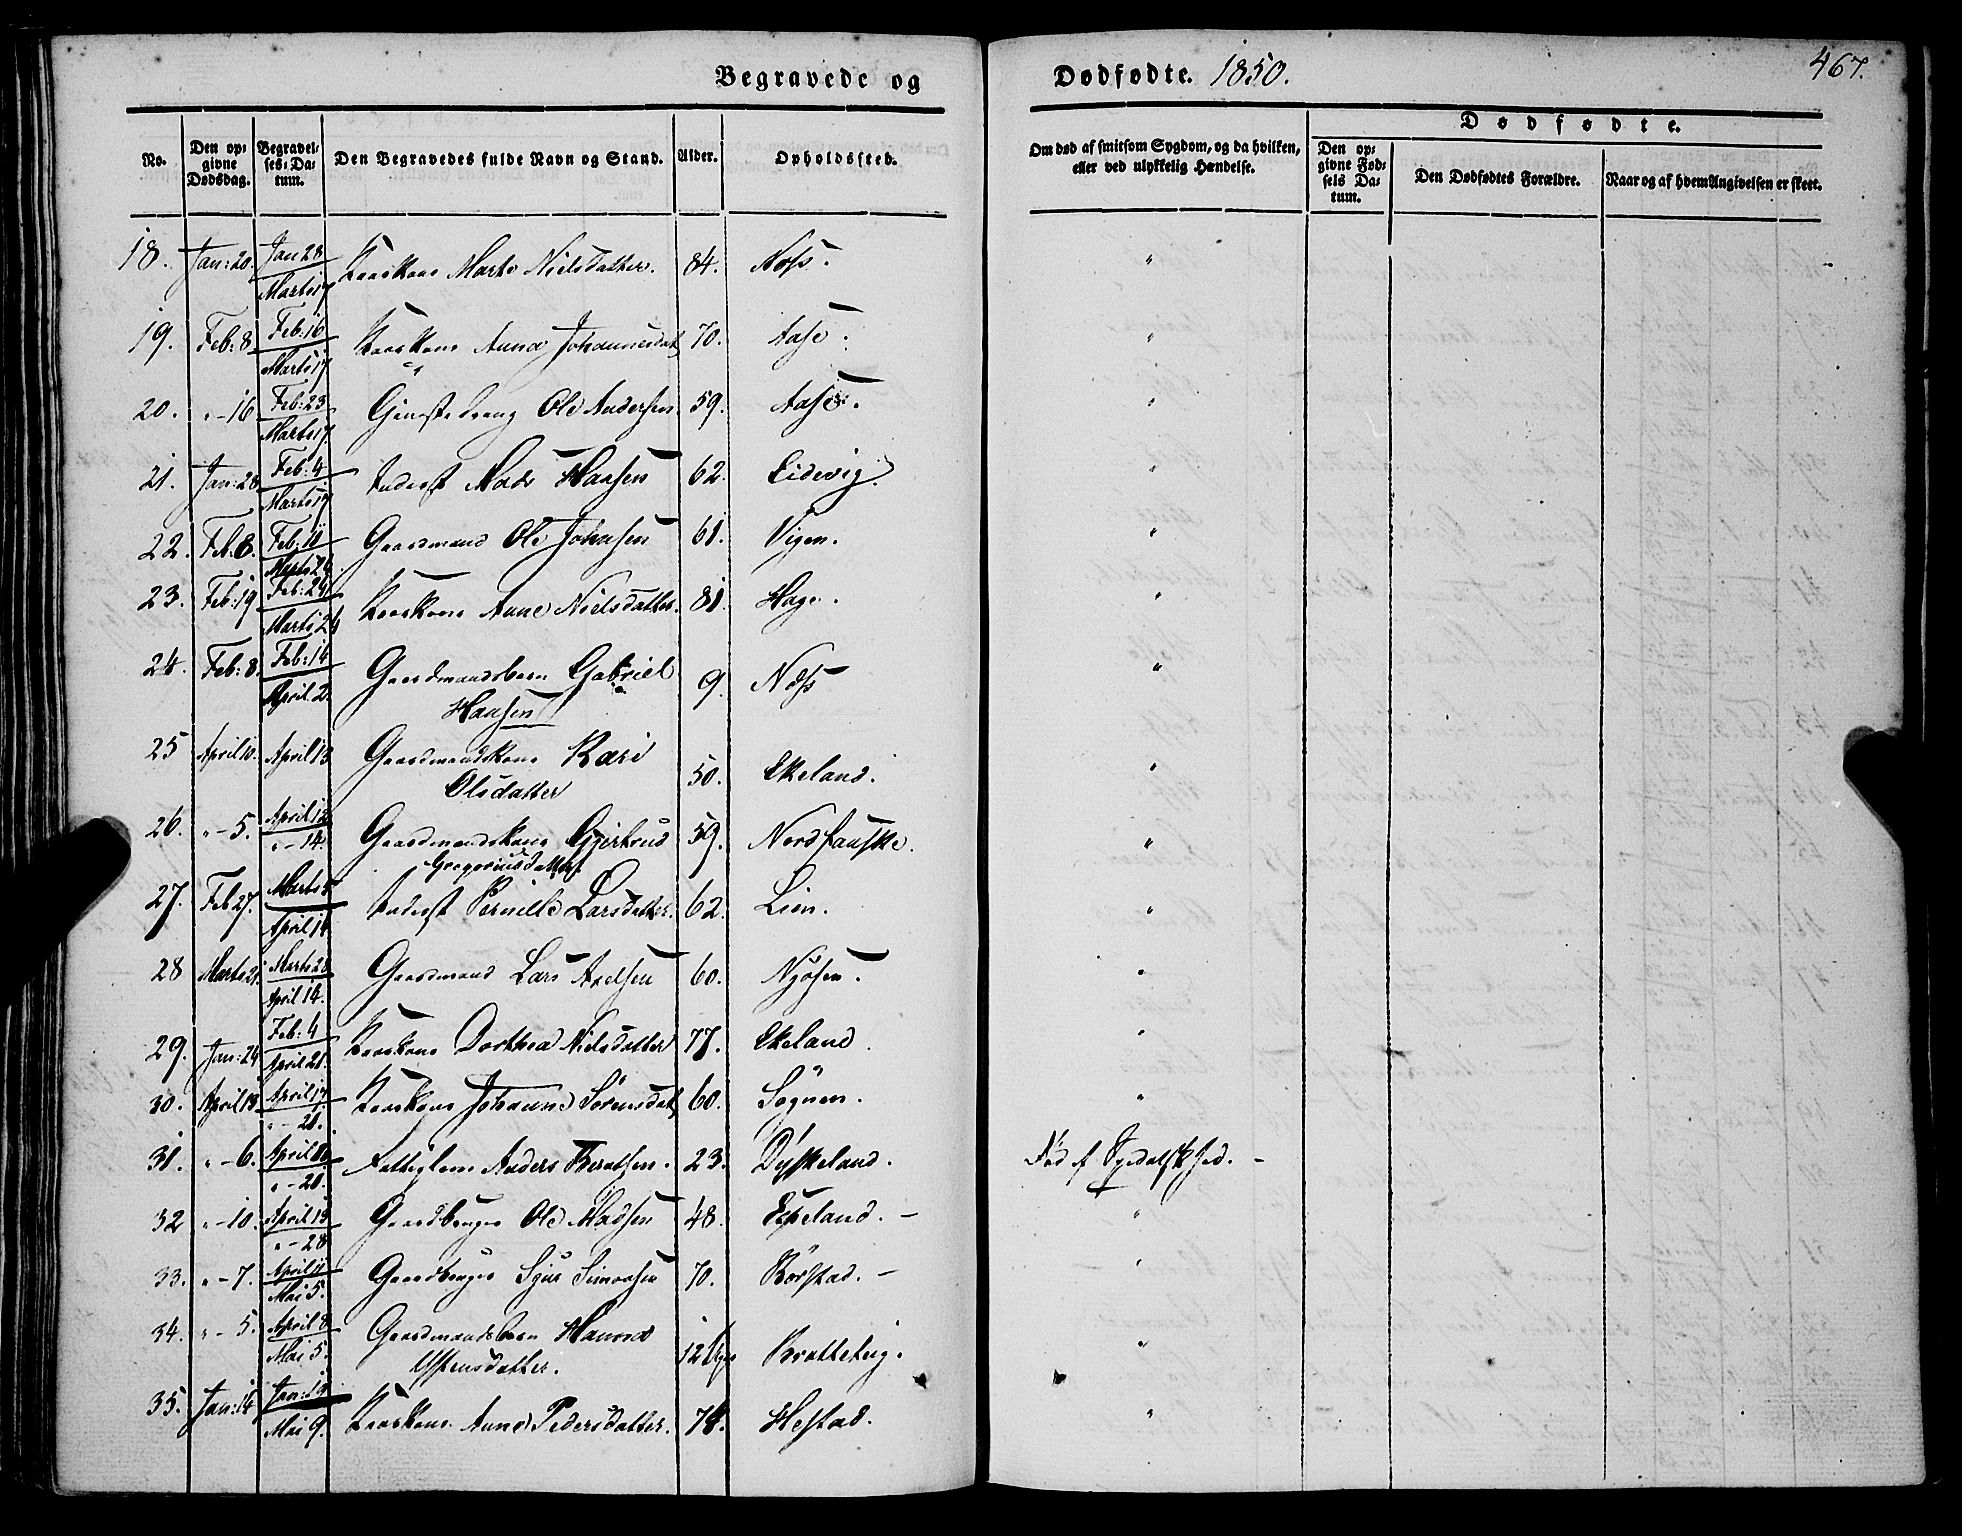 Begravede og Dødfødte. 1850. 467.
No. Den opgivne Dødsdag. Begravelses-Datum. Den Begravedes fulde Navn og Stand. Alder. Opholdssted. Om død af smitsom Sygdom, og da hvilken, eller ved ulykkelig Hændelse. Dødfødte. Den opgivne Fødsels Datum. Den Dødfødtes Forældre. Naar og af hvem Angivelsen er skeet.
18. Jan: 20. Jan 28 Marts 17 Kaarkone Marte Nielsdatter. 84. Aass. "
19. Feb: 8. Feb: 16 Marts 17 Kaarkone Anna Johannesdat 70. Aase. "
20. " - 16 Feb: 23 Marts 17. Olе Andersen. 59. Aase. "
21. Jan: 28 Feb: 4 Marts 17 Inderst Mads Hansen 62. Eidevig. "
22. Feb. 8. Feb: 11 Marts 24. Gaardmand Ole Johnsen 61. Vigen. "
23. Feb: 19 Feb: 24 Marts 24 Kaarkone Anne Nielsdatter. 81. Hage. "
24. Feb: 8. Feb: 14 April 2. Gaardmandsbarn Gabriel Hansen 9. Næss "
25 April 10. April 13 Gaardmandskone Kari Olsdatter 50. Ekeland. "
26. " - 5. April 12 " - 14. Gaardmandskone Gjertrud Gregoriusdatter. 59. Nordfauske. "
27. Feb 27. Marts 5 April 14. Inderst Pernille Larsdatter. 62. Lien. "
28 Marts 21. Marts 28 April 14. Gaardmand Lars Axelsen 60. Nyøsen. "
29. Jan: 24 Feb: 4 April 21. Kaarkone Dorthea Nielsdatter 77. Ekeland. "
30. April 13 April 17. " - 21. Kaarkone Johanne Sörensdat 60. Sögnen. "
31. " - 6. April " - 21. Fattiglem Anders Berntsen. 23. Dyskeland. Död af Spedalskhed. -
32 " - 10. April 13 " - 28 Gaardbruger Ole Madsen 48. Espeland. - "
33. " - 7. April 11 Mai 5. Gaardbruger Sjur Simonsen 70. Börstad. - "
34. " - 5. April 8 Mai 5. Gaardmandsbarn Hanna Ystensdatter. 12 Uger Bratteteig. "
35. Jan: 14 Mai 9. Kaarkone Anne Pedersdatter. 74. Hestad. "